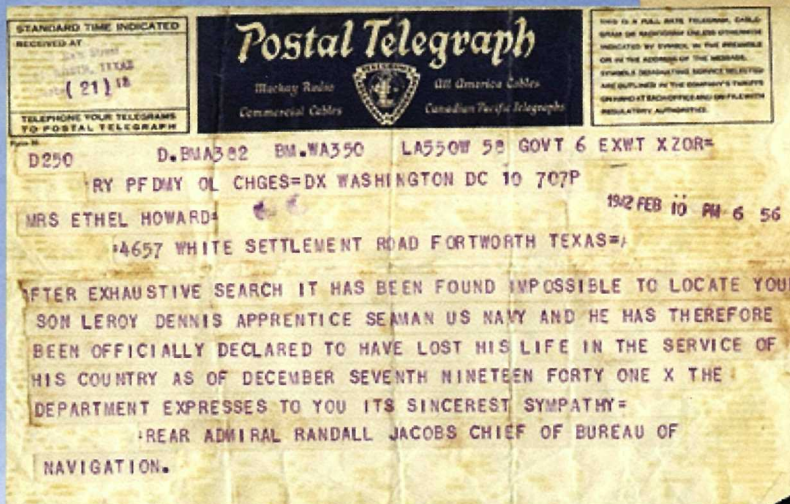 STANDARD TIME INDICATED
RECEIVED AT
TEXAS
( 21 )
TELEPHONE YOUR TELEGRAMS
TO POSTAL TELEGRAPH
Postal Telegraph
Mackay Radio
All America Cables
Commercial Cables
Canadian Pacific Telegraphs
THIS IS A FULL RATE TELEGRAM, CABLE-
GRAM OR RADIOGRAM UNLESS OTHERWISE
INDICATED BY SYMBOL IN THE PREAMBLE
OR IN THE ADDRESS OF THE MESSAGE.
SYMBOLS DESIGNATING SERVICE SELECTED
ARE OUTLINED IN THE COMPANY'S TARIFFS
ON HAND AT EACH OFFICE AND ON FILE WITH
REGULATORY AUTHORITIES.
D250 D.BMA382 BM.WA350 LA55OW 58 GOVT 6 EXWT XZOR=
RY PFDMY OL CHGES=DX WASHINGTON DC 10 707P
1942 FEB 10 PM 6 56
MRS ETHEL HOWARD=
4657 WHITE SETTLEMENT ROAD FORTWORTH TEXAS=
AFTER EXHAUSTIVE SEARCH IT HAS BEEN FOUND IMPOSSIBLE TO LOCATE YOU
SON LEROY DENNIS APPRENTICE SEAMAN US NAVY AND HE HAS THEREFORE
BEEN OFFICIALLY DECLARED TO HAVE LOST HIS LIFE IN THE SERVICE OF
HIS COUNTRY AS OF DECEMBER SEVENTH NINETEEN FORTY ONE X THE
DEPARTMENT EXPRESSES TO YOU ITS SINCEREST SYMPATHY=
REAR ADMIRAL RANDALL JACOBS CHIEF OF BUREAU OF
NAVIGATION.